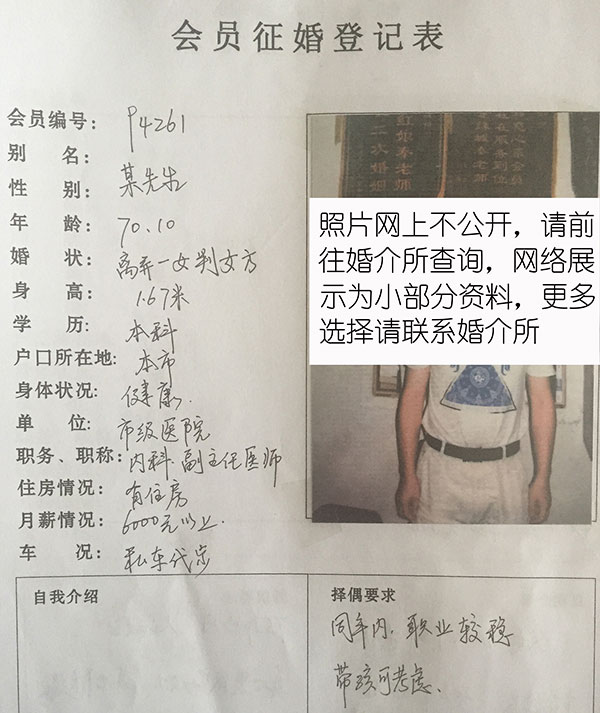 会员征婚登记表
会员编号: P4261
别 名: 某先生
性 别:
年 龄: 70.10
婚 状: 离异一女判女方
身 高: 1.67米
学 历: 本科
户口所在地: 本市
身体状况: 健康
单 位: 市级医院
职务、职称: 内科.副主任医师
住房情况: 有住房
月薪情况: 6000元以上.
车 况: 私车代步
照片网上不公开，请前
往婚介所查询，网络展
示为小部分资料，更多
选择请联系婚介所
二次婚姻
红娘秦老师
自我介绍
择偶要求
同年内、职业较稳
带孩可考虑.